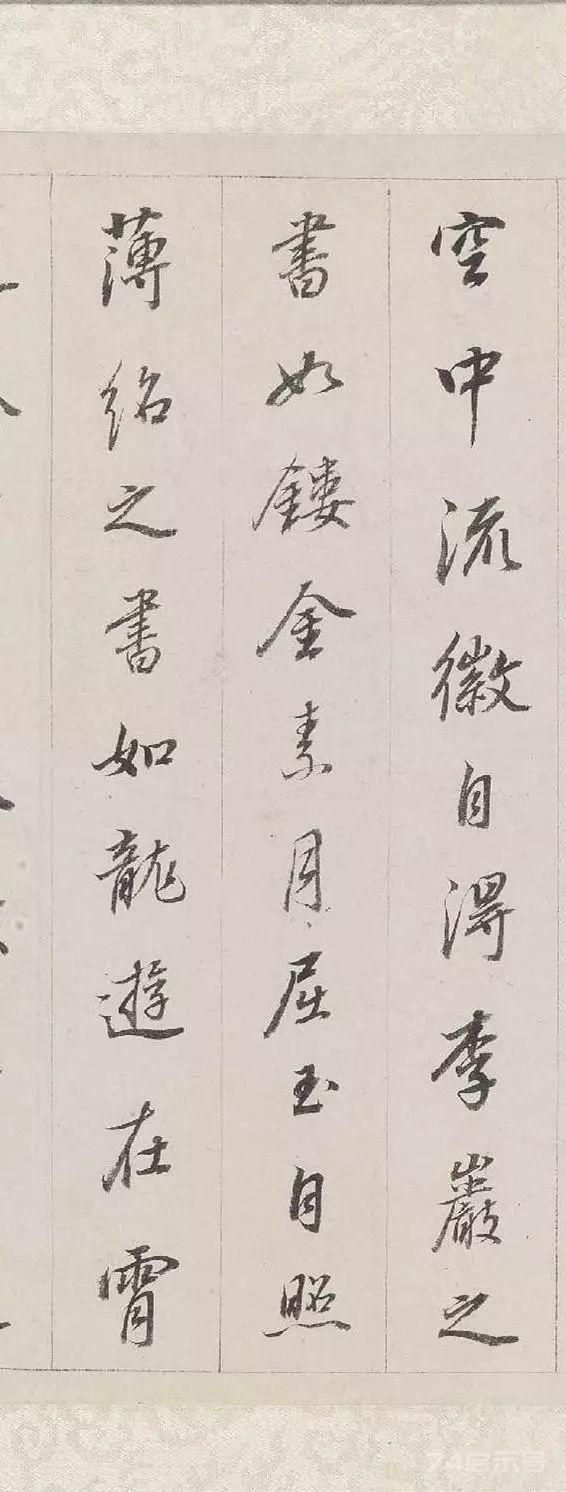 空中流徽自得李巖之
書如鏤金素月屈玉自照
薄紹之書如龍遊在霄